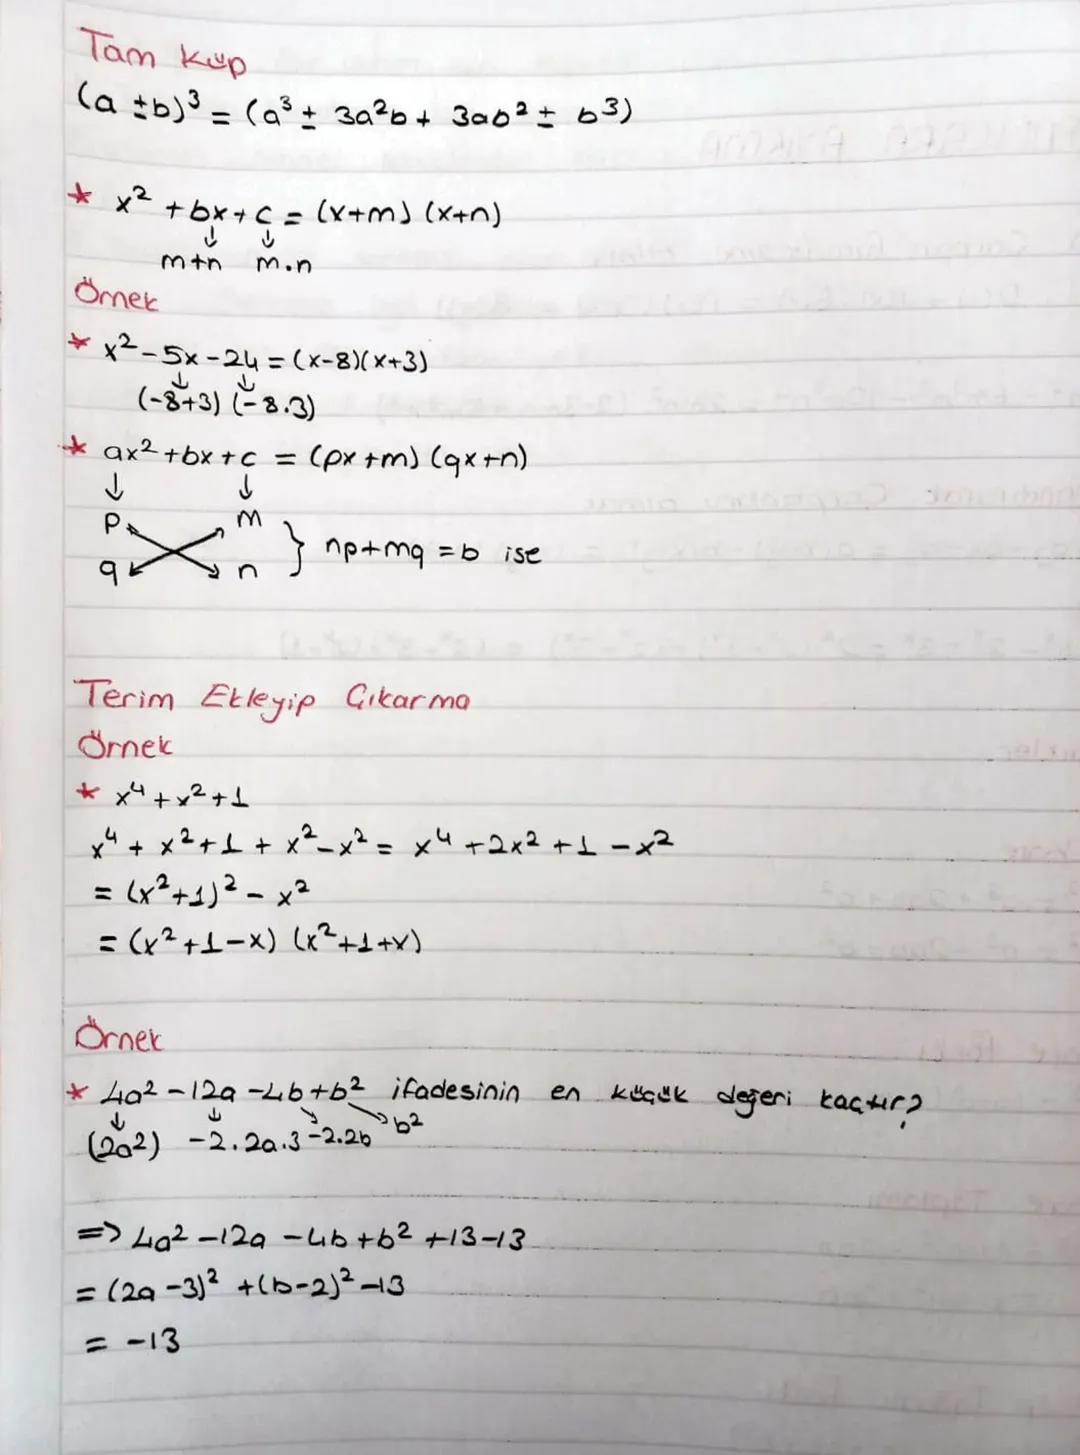 Tam Küp
(a ±b)³ = (a³ ± 3a²b + 3ab² ± b³)
* x² + bx + c = (x+m) (x+n)
↓ ↓
m+n m.n
Örnek
* x² - 5x - 24 = (x-8)(x+3)
↓ ↓
(-8+3) (-8.3)
* ax² + bx + c = (px+m) (qx+n)
↓ ↓
p m
q n } np+mq = b ise
Terim Ekleyip Çıkarma
Örnek
* x⁴ + x² + 1
x⁴ + x² + 1 + x² - x² = x⁴ + 2x² + 1 - x²
= (x²+1)² - x²
= (x²+1-x) (x²+1+x)
Örnek
* 4a² - 12a - 4b + b² ifadesinin en küçük değeri kaçtır?
↓ ↓ ↘ ↘
(2a²) -2.2a.3 -2.2b b²
=> 4a² - 12a - 4b + b² + 13 - 13
= (2a - 3)² + (b-2)² - 13
= -13